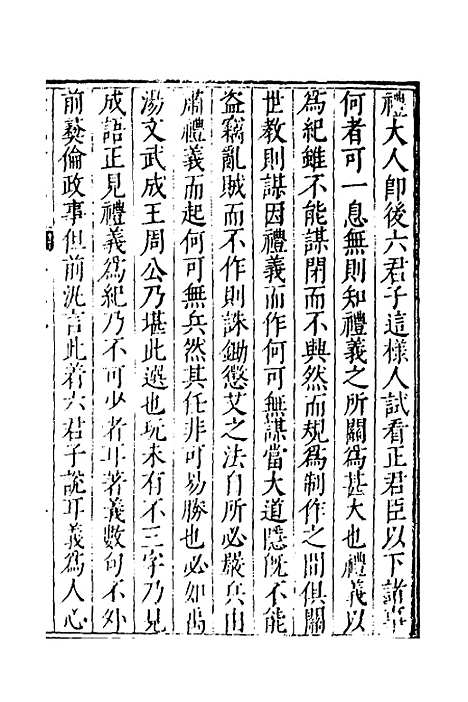 禮大人即後六君子這様人試看正君臣以下諸事
何者可一息無則知禮義之所關為甚大也禮義以
為紀雖不能謀閉而不興然而規為制作之間俱關
世教則謀因禮義而作何可無謀當大道隱既不能
盜竊亂賊而不作則誅鋤懲艾之法自所必嚴兵由
肅禮義而起何可無兵然其任非可易勝也必如禹
湯文武成王周公乃堪此選也玩未有不三字乃見
成語正見禮義為紀乃不可少者耳著義數句不外
前彛倫政事但前汎言此着六君子說耳義為人心